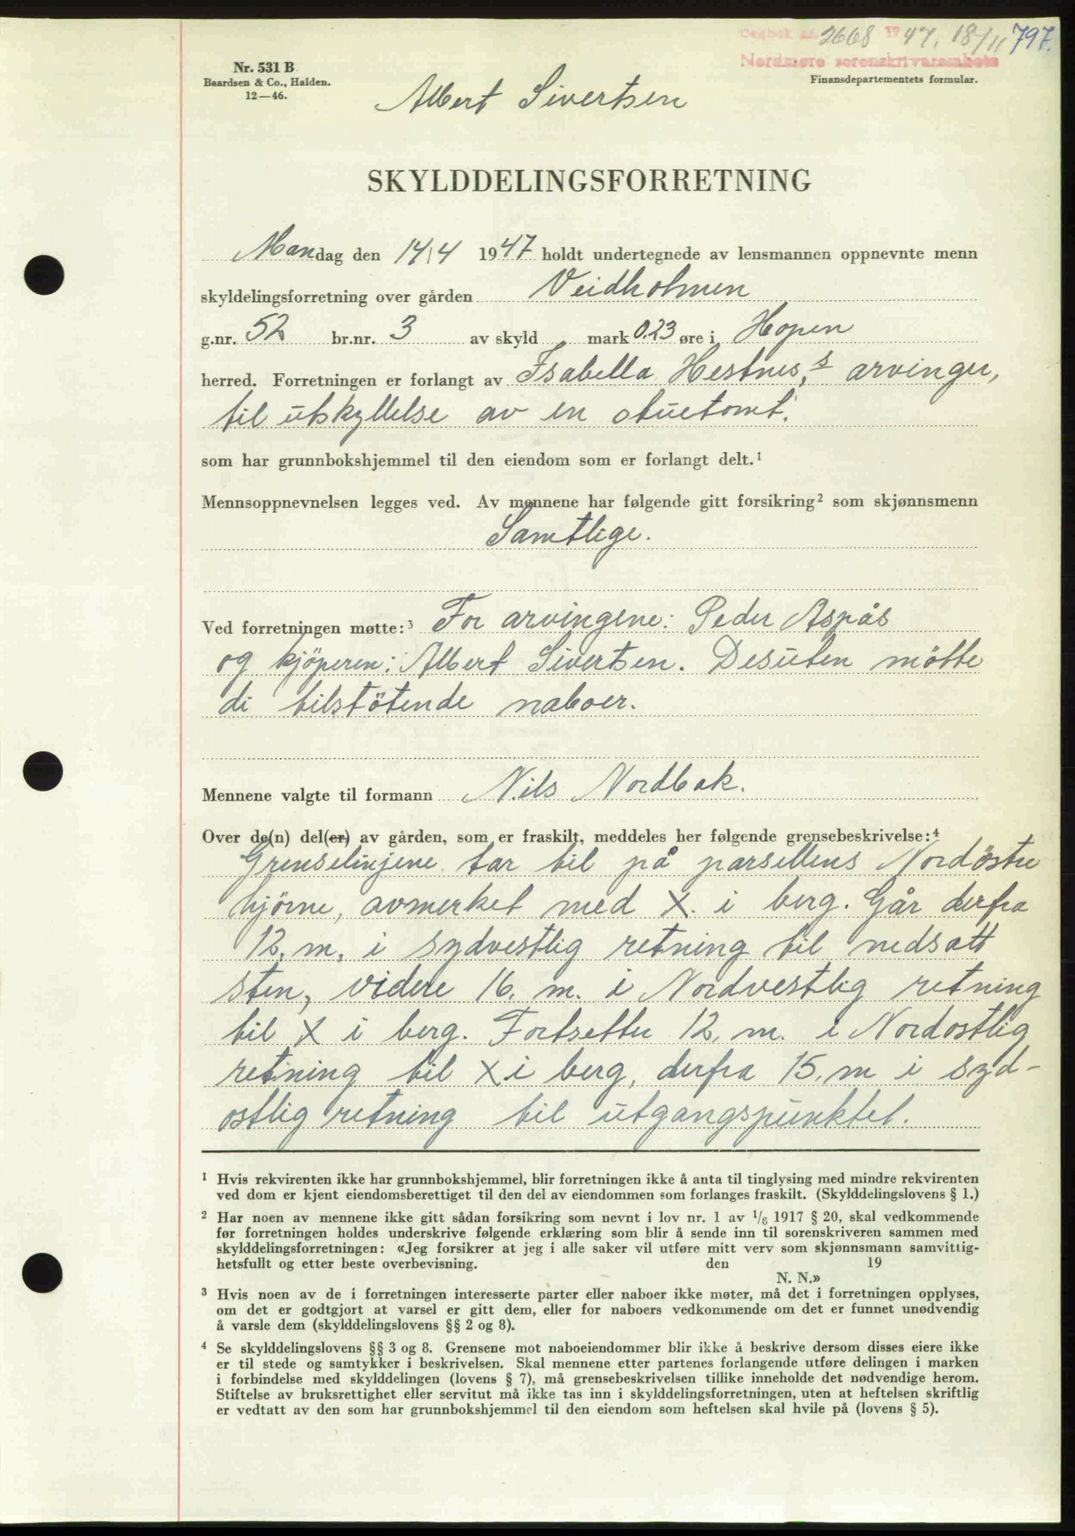 Dagbok nr. 2668 1947. 18/11 797.
Nordmøre sorenskriverembete
Nr. 531 B
Baardsen & Co., Halden.
12—46.
Finansdepartementets formular.
Albert Sivertsen
SKYLDDELINGSFORRETNING
Mandag den 14/4 1947 holdt undertegnede av lensmannen oppnevnte menn
skyldelingsforretning over gården Veidholmen
g.nr. 52 br.nr. 3 av skyld mark 0.23 øre i Hopen
herred. Forretningen er forlangt av Isabella Hestnes,s arvinger,
til utskyllelse av en stuetomt.
som har grunnbokshjemmel til den eiendom som er forlangt delt.¹
Mennsoppnevnelsen legges ved. Av mennene har følgende gitt forsikring² som skjønnsmenn
Samtlige.
Ved forretningen møtte:³ For arvingene: Peder Aspås
og kjöperen: Albert Sivertsen. Desuten mötte
di tilstötende naboer.
Mennene valgte til formann Nils Nordbak.
Over de(n) del(er) av gården, som er fraskilt, meddeles her følgende grensebeskrivelse:⁴
Grenselinjene tar til på parsellens Nordöstre
hjörne, avmerket med X. i berg. Går derfra
12, m, i sydvestlig retning til nedsatt
sten, videre 16. m. i Nordvestlig retning
til X i berg. Fortsetter 12, m. i Nordostlig
retning til X i berg, derfra 15, m i syd-
ostlig retning til utgangspunktet.
¹ Hvis rekvirenten ikke har grunnbokshjemmel, blir forretningen ikke å anta til tinglysing med mindre rekvirenten
ved dom er kjent eiendomsberettiget til den del av eiendommen som forlanges fraskilt. (Skylddelingslovens § 1.)
² Har noen av mennene ikke gitt sådan forsikring som nevnt i lov nr. 1 av ¹/₆ 1917 § 20, skal vedkommende
før forretningen holdes underskrive følgende erklæring som blir å sende inn til sorenskriveren sammen med
skylddelingsforretningen: «Jeg forsikrer at jeg i alle saker vil utføre mitt verv som skjønnsmann samvittig-
hetsfullt og etter beste overbevisning. den 19
N. N.»
³ Hvis noen av de i forretningen interesserte parter eller naboer ikke møter, må det i forretningen opplyses,
om det er godtgjort at varsel er gitt dem, eller for naboers vedkommende om det er funnet unødvendig
å varsle dem (skylddelingslovens §§ 2 og 8).
⁴ Se skylddelingslovens §§ 3 og 8. Grensene mot naboeiendommer blir ikke å beskrive dersom disses eiere ikke
er til stede og samtykker i beskrivelsen. Skal mennene etter partenes forlangende utføre delingen i marken
i forbindelse med skylddelingen (lovens § 7), må grensebeskrivelsen tillike inneholde det nødvendige herom.
Stiftelse av bruksrettighet eller servitut må ikke tas inn i skylddelingsforretningen, uten at heftelsen skriftlig
er vedtatt av den som har grunnbokshjemmel til den eiendom som heftelsen skal hvile på (lovens § 5).